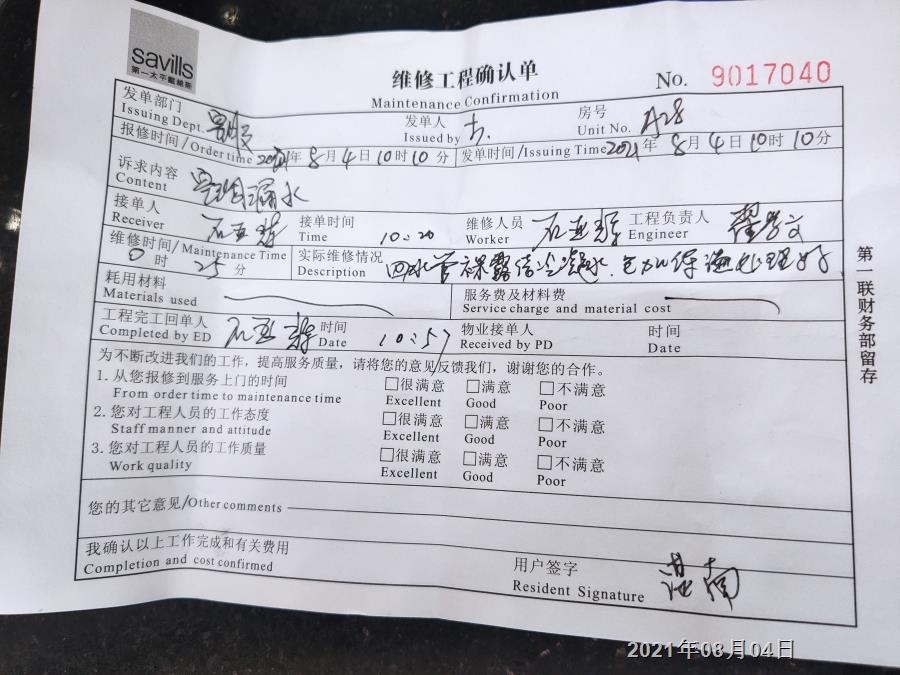 savills
第一太平戴维斯
维修工程确认单
Maintenance Confirmation
No. 9017040
发单部门
Issuing Dept.
发单人
Issued by
房号
Unit No. A28
报修时间/Order time 2021年8月4日10时10分
发单时间/Issuing Time 2021年8月4日10时10分
诉求内容
Content
漏水
接单人
Receiver
接单时间
Time 10:20
维修人员
Worker
工程负责人
Engineer
维修时间/Maintenance Time
0时25分
实际维修情况
Description
耗用材料
Materials used
服务费及材料费
Service charge and material cost
工程完工回单人
Completed by ED
时间
Date 10:57
物业接单人
Received by PD
时间
Date
为不断改进我们的工作，提高服务质量，请将您的意见反馈我们，谢谢您的合作。
1. 从您报修到服务上门的时间 □很满意 □满意 □不满意
From order time to maintenance time Excellent Good Poor
2. 您对工程人员的工作态度 □很满意 □满意 □不满意
Staff manner and attitude Excellent Good Poor
3. 您对工程人员的工作质量 □很满意 □满意 □不满意
Work quality Excellent Good Poor
您的其它意见/Other comments
我确认以上工作完成和有关费用
Completion and cost confirmed
用户签字
Resident Signature
第一联财务部留存
2021年08月04日